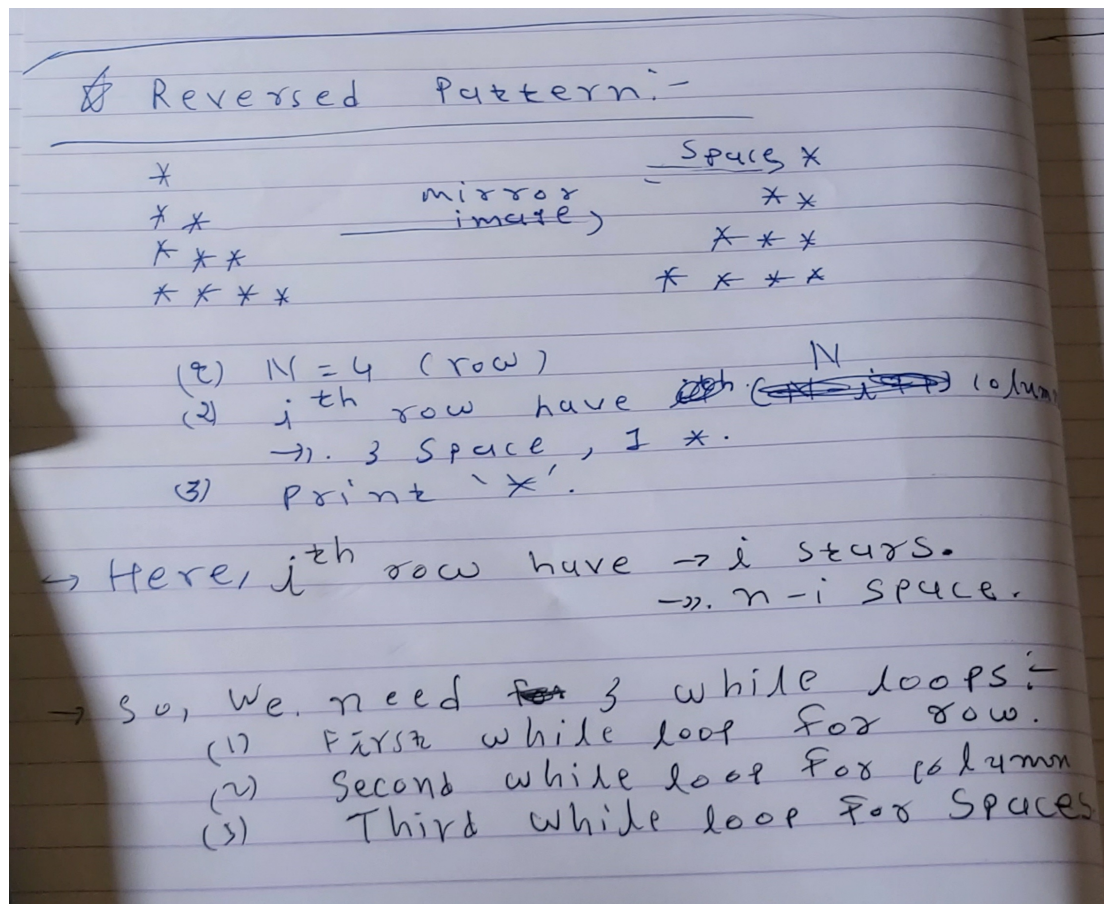 ☆ Reversed Pattern:-
* Space *
* * mirror image, * *
* * * * * *
* * * * * * * *
(1) N = 4 (row)
(2) ith row have N column
→ 3 Space, 1 *.
(3) Print '*'.
→ Here, ith row have → i stars.
→ n-i space.
→ So, We need 3 while loops:-
(1) First while loop for row.
(2) Second while loop for column
(3) Third while loop for Spaces